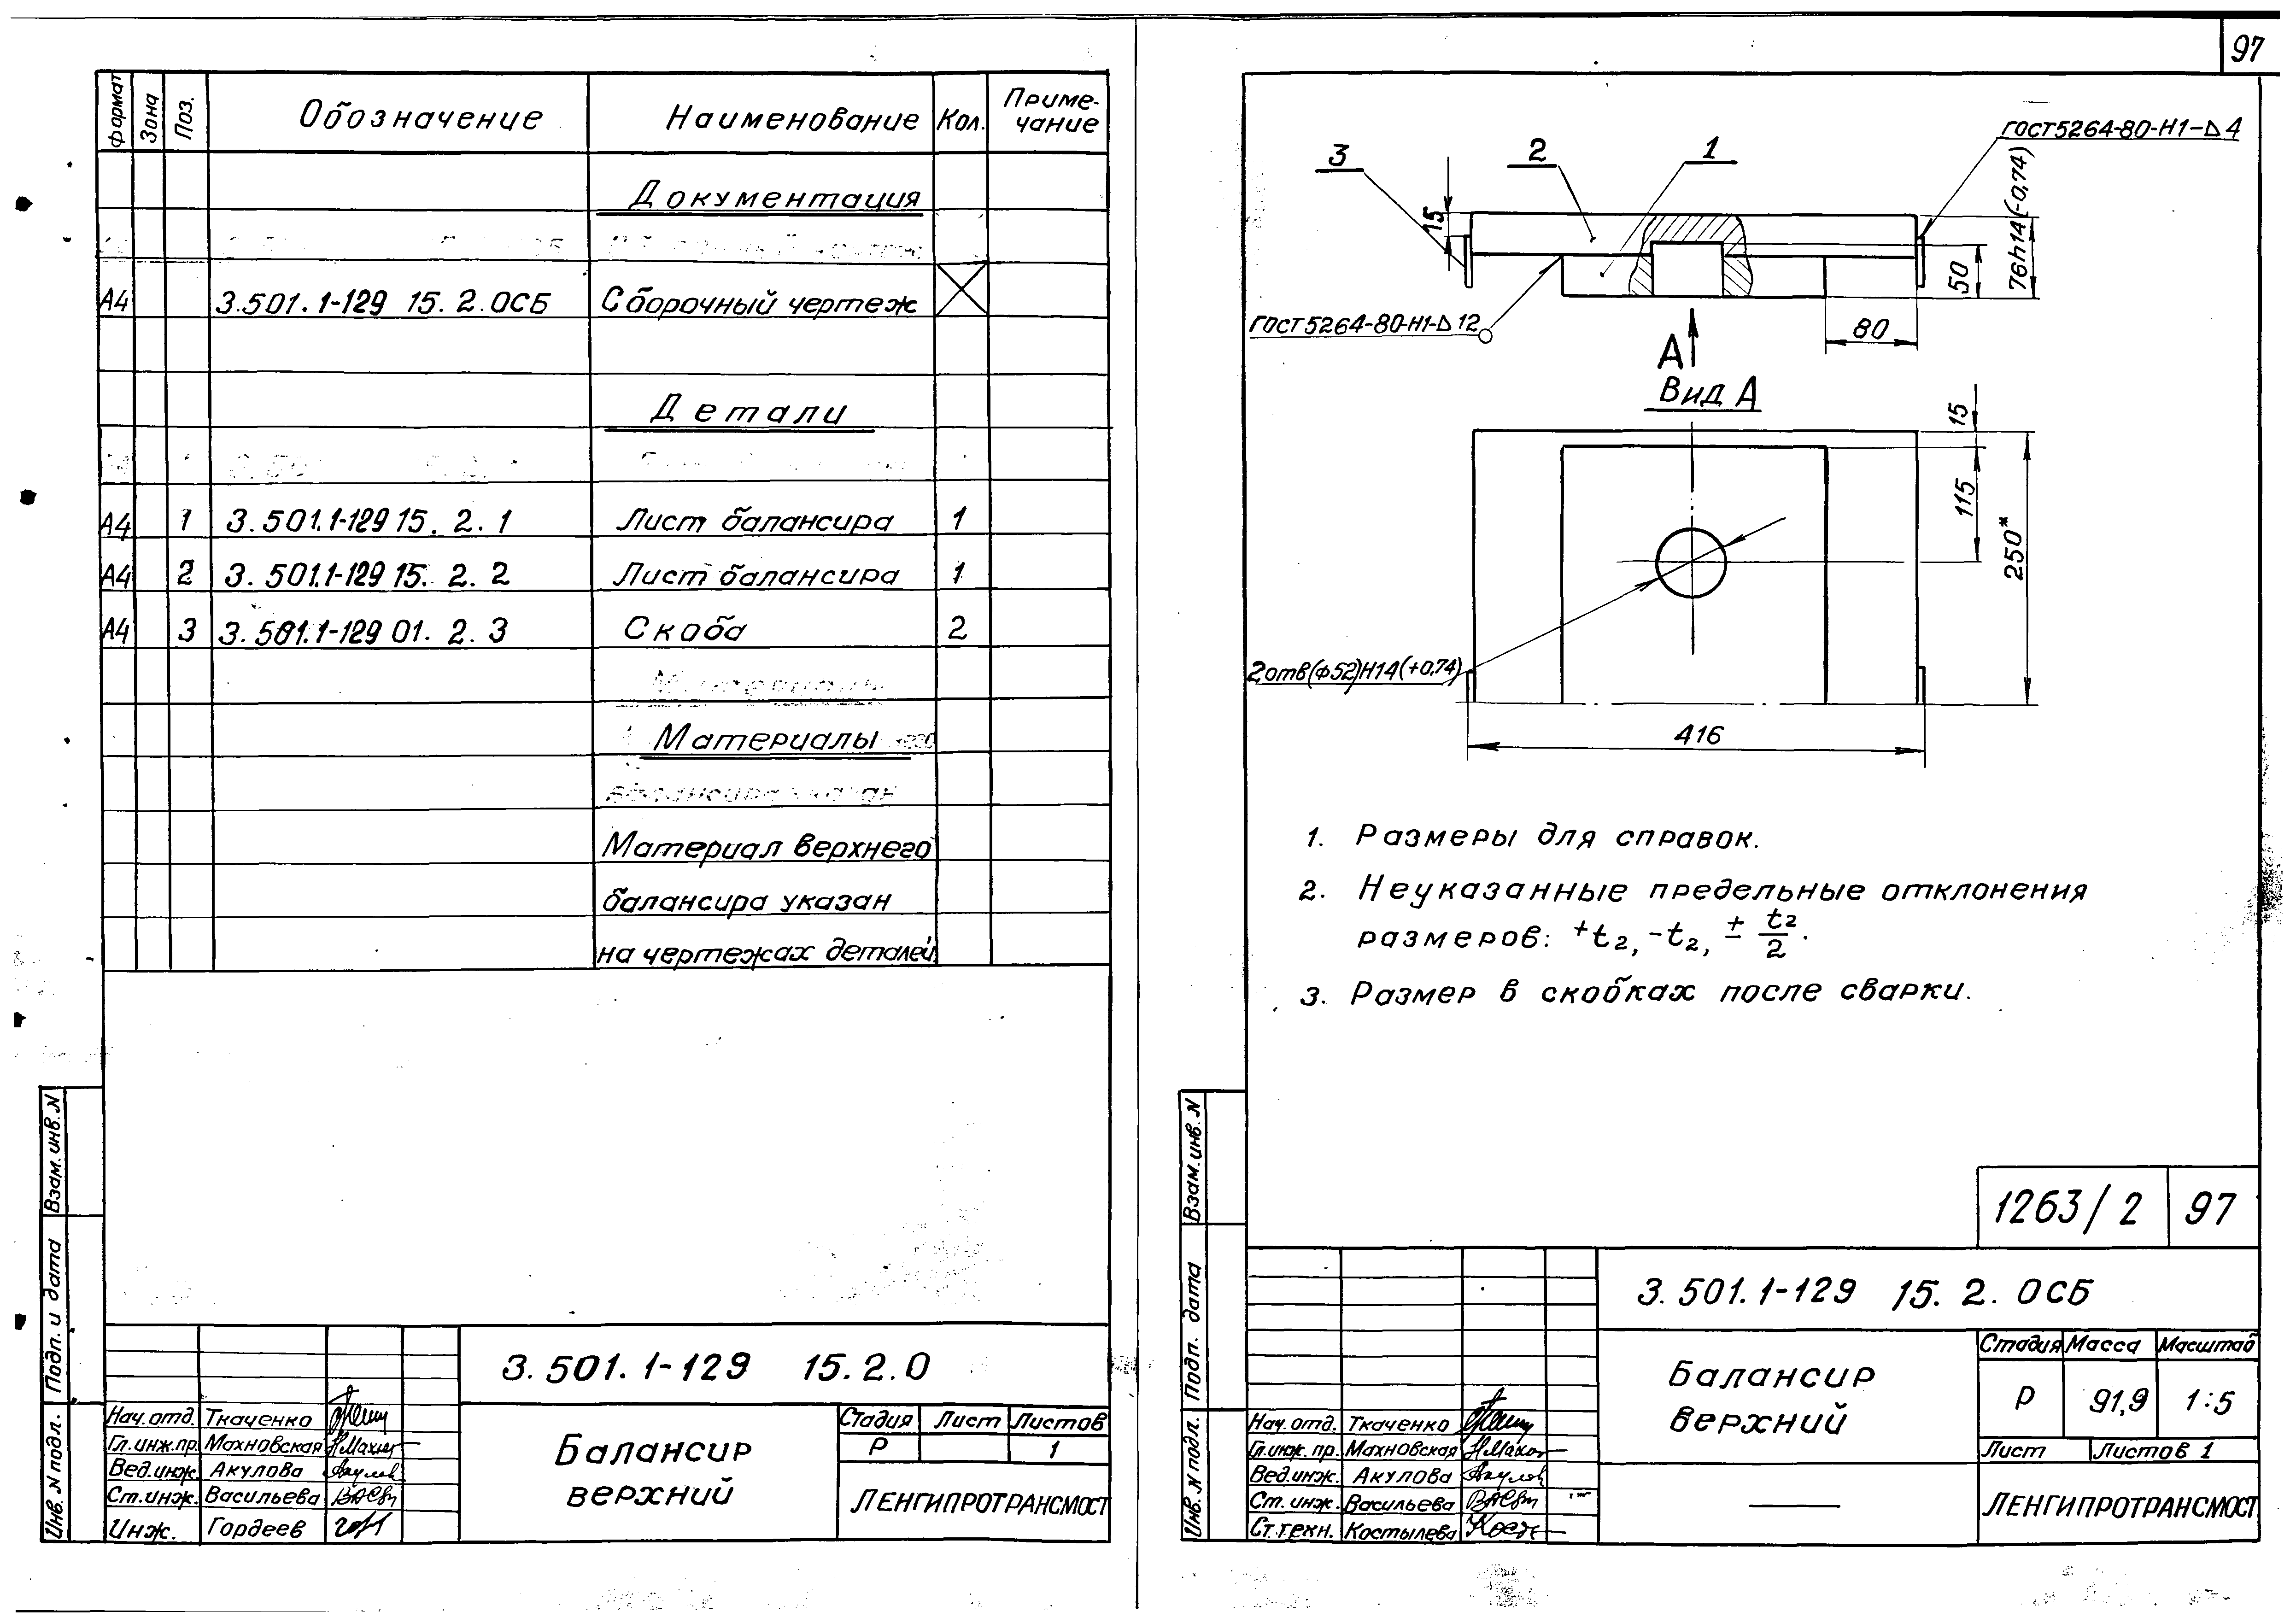 формат Зона Поз. Обозначение Наименование Кол. Приме-
чание
Документация
А4 3.501.1-129 15.2.0СБ Сборочный чертеж
Детали
А4 1 3.501.1-129 15.2.1 Лист балансира 1
А4 2 3.501.1-129 15.2.2 Лист балансира 1
А4 3 3.501.1-129 01.2.3 Скоба 2
Материалы
Материал верхнего
балансира указан
на чертежах деталей
Взам. инв. N
Подп. и дата
Инв. N подл.
3.501.1-129 15.2.0
Нач. отд. Ткаченко
Гл. инж. пр. Махновская
Вед. инж. Акулова
Ст. инж. Васильева
Инж. Гордеев
Балансир
верхний
Стадия Лист Листов
Р 1
ЛЕНГИПРОТРАНСМОСТ
97
ГОСТ 5264-80-Н1-⊿4
3 2 1
15
76h14(-0,74)
50
80
ГОСТ 5264-80-Н1-⊿12
А
Вид А
15
115
250*
2 отв (ф52)Н14(+0,74)
416
1. Размеры для справок.
2. Неуказанные предельные отклонения
размеров: +t2, -t2, ± t2/2.
3. Размер в скобках после сварки.
1263/2 97
Взам. инв. N
Подп. дата
Инв. N подл.
3.501.1-129 15.2.0СБ
Балансир
верхний
Стадия Масса Масштаб
Р 91,9 1:5
Лист Листов 1
Нач. отд. Ткаченко
Гл. инж. пр. Махновская
Вед. инж. Акулова
Ст. инж. Васильева
Ст. техн. Костылева
ЛЕНГИПРОТРАНСМОСТ